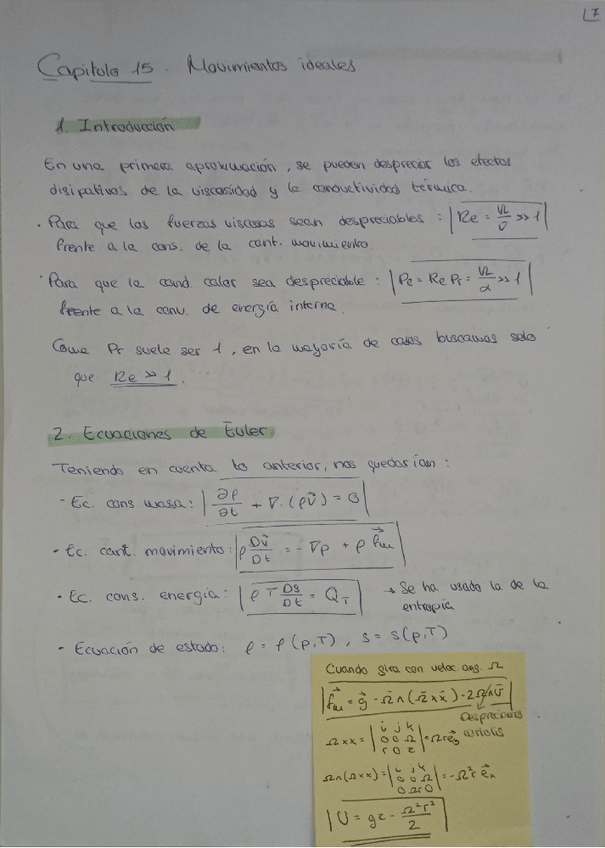 7
Capitulo 15. Movimientos ideales
1. Introducción
En una primera aproximación, se pueden despreciar los efectos
disipativos de la viscosidad y la conductividad térmica.
· Para que las fuerzas viscosas sean despreciables : Re = VL/ν >> 1
frente a la cons. de la cant. movimiento
· Para que la cond. calor sea despreciable : Pe = Re Pr = VL/α >> 1
frente a la conv. de energía interna.
Como Pr suele ser 1, en la mayoría de casos buscamos solo
que Re >> 1.
2. Ecuaciones de Euler.
Teniendo en cuenta lo anterior, nos quedarían :
- Ec. cons masa: ∂ρ/∂t + ∇·(ρv⃗) = 0
· Ec. cant. movimiento: ρ Dv⃗/Dt = -∇p + ρ f⃗m
· Ec. cons. energía: ρ T DS/Dt = Q_T → Se ha usado la de la
entropía
- Ecuación de estado: ρ = ρ(p,T), s = s(p,T)
Cuando gira con veloc. ang. Ω
f⃗m = g⃗ - Ω̄ ∧ (Ω̄ × x̄) - 2Ω̄ ∧ v̄
Despreciamos
Ω × x = | i j k ; 0 0 Ω ; r 0 z | = Ω r e⃗y coriolis
Ω ∧ (Ω × x) = | i j k ; 0 0 Ω ; 0 Ωr 0 | = -Ω² r e⃗x
U = gz - Ω² r²/2